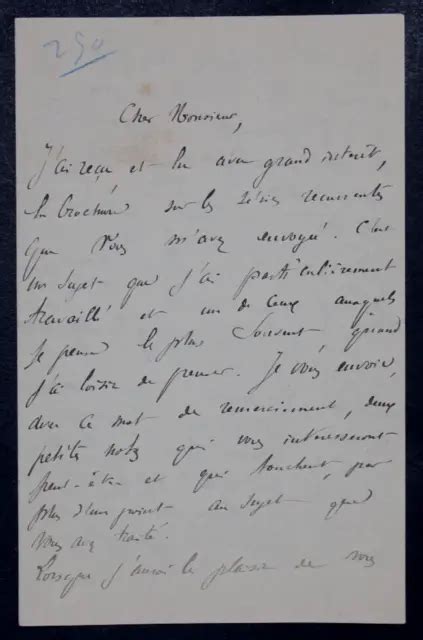 250
Cher Monsieur,
J'ai reçu et lu avec grand intérêt,
la brochure sur les séries recurrentes
que vous m'avez envoyé. C'est
un sujet que j'ai particulièrement
travaillé et un de ceux auxquels
je pense le plus souvent, quand
j'ai loisir de penser. Je vous envoie,
avec ce mot de remerciement, deux
petites notes qui vous intéresseront
peut-être et qui touchent, par
plus d'un point au sujet que
vous avez traité.
Lorsque j'aurai le plaisir de vous